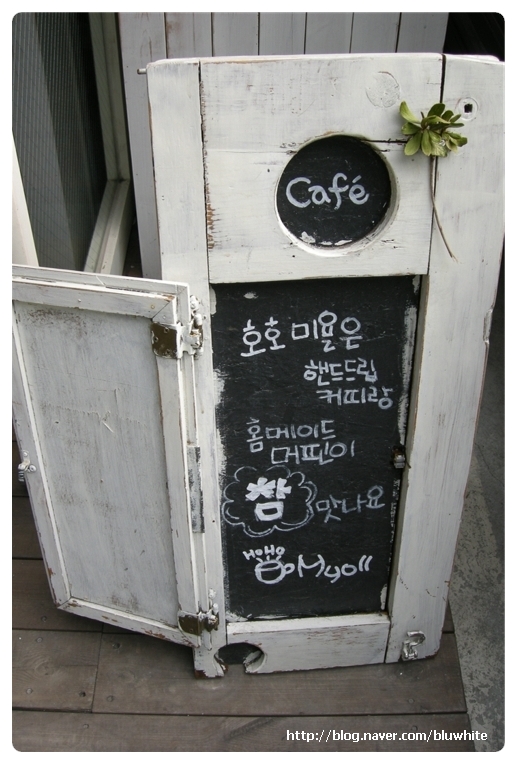 Café
호호미욜은
핸드드립
커피랑
홈메이드
머핀이
참 맛나요
HoHo
Myoll
http://blog.naver.com/bluwhite